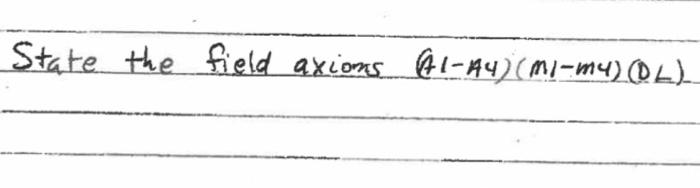 State the field axioms (A1-A4)(M1-M4)(DL)